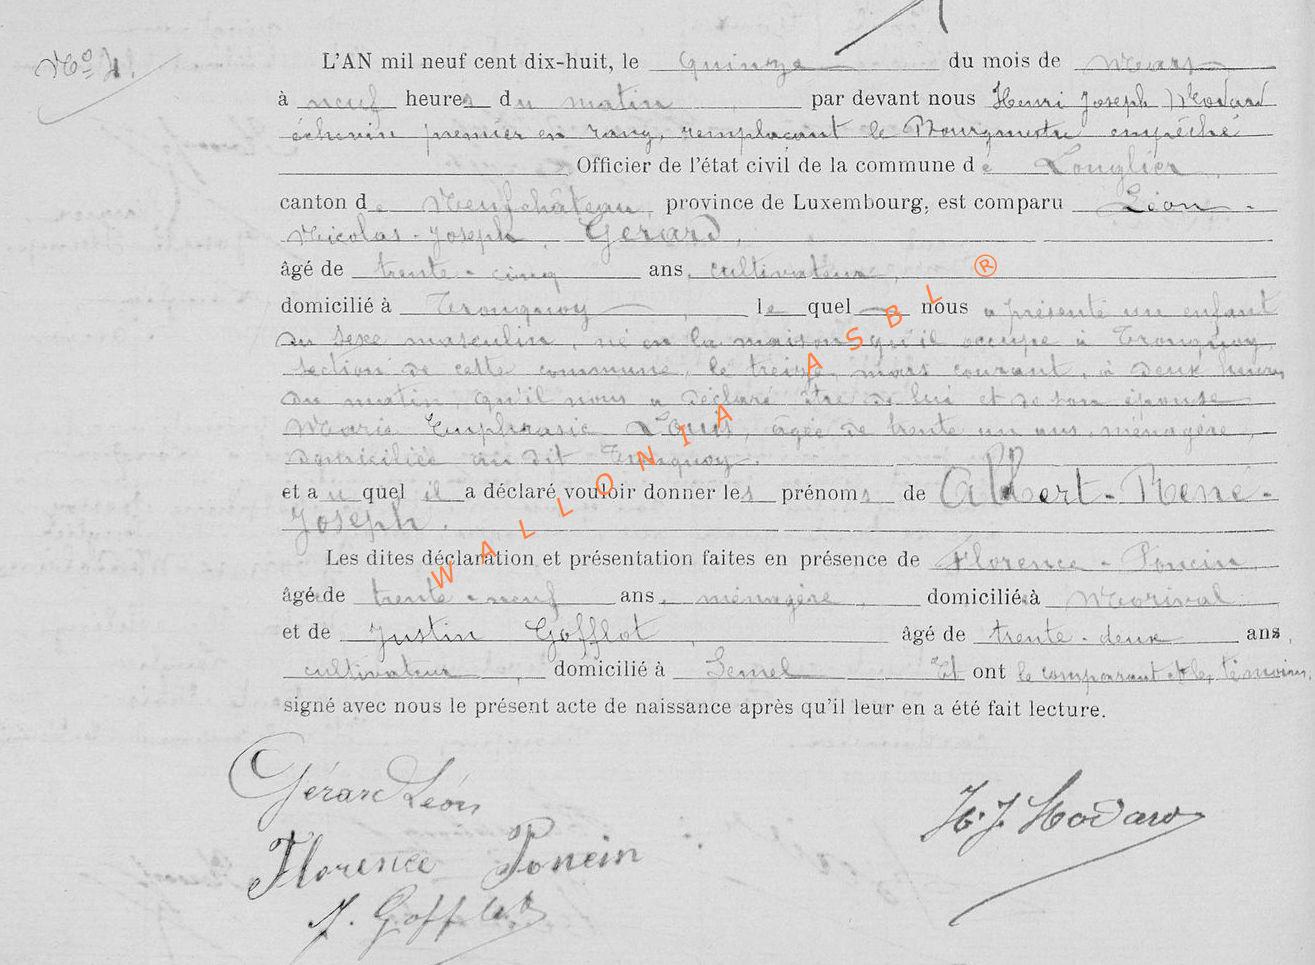 No 4.
L'AN mil neuf cent dix-huit, le quinze du mois de Mars
à neuf heures du matin par devant nous Henri Joseph Modard
échevin premier en rang, remplaçant le Bourgmestre empêché
Officier de l'état civil de la commune de Longlier
canton de Neufchâteau, province de Luxembourg, est comparu Léon-
Nicolas-Joseph Gérard,
âgé de trente-cinq ans, cultivateur,
domicilié à Tronquoy, lequel nous a présenté un enfant
du sexe masculin, né en la maison qu'il occupe à Tronquoy,
section de cette commune, le treize mars courant, à deux heures
du matin, qu'il nous a déclaré être de lui et de son épouse
Marie Emphrasie, âgée de trente un ans, ménagère,
domiciliée au dit Tronquoy.
et auquel il a déclaré vouloir donner les prénoms de Albert-René-
Joseph.
Les dites déclaration et présentation faites en présence de Florence Poncin
âgée de trente-neuf ans, ménagère, domiciliée à Morival
et de Justin Gofflot, âgé de trente-deux ans,
cultivateur, domicilié à Semel Et ont le comparant et les témoins,
signé avec nous le présent acte de naissance après qu'il leur en a été fait lecture.
Gérard Léon
H. J. Modard
Florence Poncin
J. Gofflot
WALLONIA ASBL ®